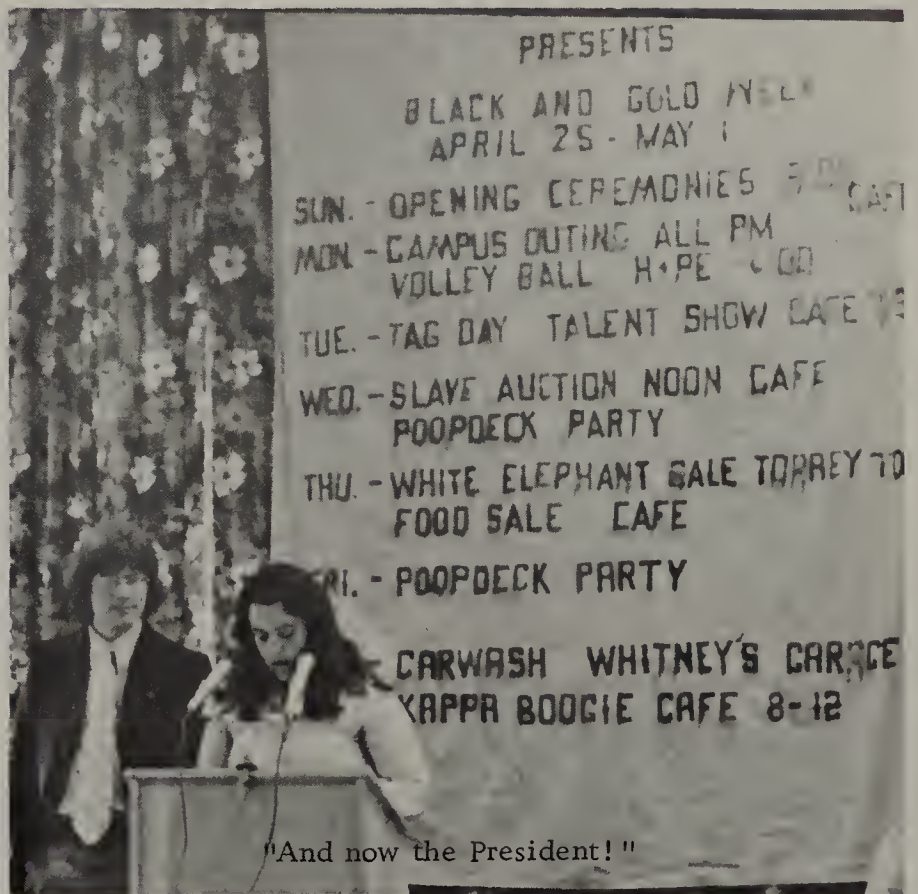 PRESENTS
BLACK AND GOLD WEEK
APRIL 25 - MAY 1
SUN. - OPENING CEREMONIES
MON - CAMPUS OUTING ALL PM
VOLLEY BALL
TUE. - TAG DAY TALENT SHOW CAFE
WED. - SLAVE AUCTION NOON CAFE
POOPDECK PARTY
THU. - WHITE ELEPHANT SALE TORREY
FOOD SALE CAFE
- POOPDECK PARTY
CARWASH WHITNEY'S GARAGE
KAPPA BOOGIE CAFE 8-12
"And now the President!"